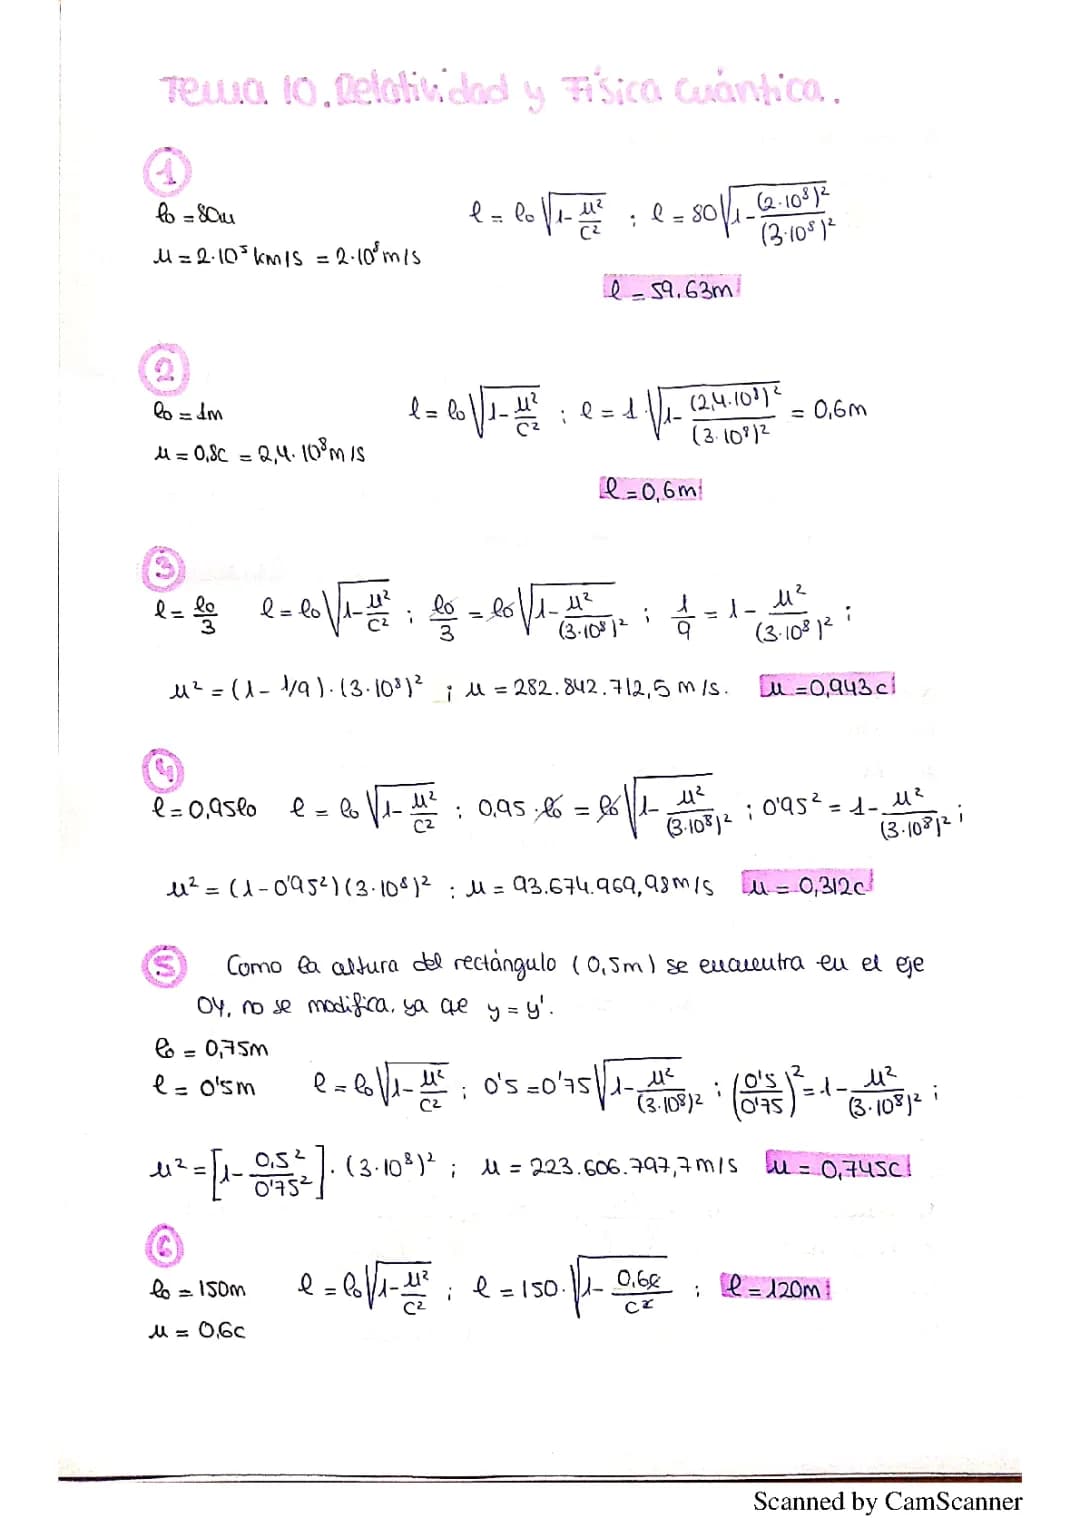 Tema 10. Relatividad y Física Cuántica.
1
l₀ = 80m
l = l₀ √(1 - u²/c²) ; l = 80 √(1 - (2·10⁸)²/(3·10⁸)²
u = 2·10⁵ km/s = 2·10⁸ m/s
l = 59.63m
2
l₀ = 1m
l = l₀ √(1 - u²/c²) ; l = 1·√(1 - (2,4·10⁸)²/(3·10⁸)²) = 0,6m
u = 0,8c = 2,4·10⁸ m/s
l = 0,6m
3
l = l₀/3 l = l₀ √(1 - u²/c²) ; l₀/3 = l₀ √(1 - u²/(3·10⁸)²) ; 1/9 = 1 - u²/(3·10⁸)² ;
u² = (1 - 1/9)·(3·10⁸)² ; u = 282.842.712,5 m/s. u = 0,943c
4
l = 0,95l₀ l = l₀ √(1 - u²/c²) ; 0,95·l₀ = l₀ √(1 - u²/(3·10⁸)²) ; 0'95² = 1 - u²/(3·10⁸)² ;
u² = (1 - 0'95²)(3·10⁸)² ; u = 93.674.969,98m/s u = 0,312c
5 Como la altura del rectángulo (0,5m) se encuentra en el eje
OY, no se modifica, ya que y = y'.
l₀ = 0,75m
l = 0'5m l = l₀ √(1 - u²/c²) ; 0'5 = 0'75 √(1 - u²/(3·10⁸)²) ; (0'5/0'75)² = 1 - u²/(3·10⁸)² ;
u² = [1 - 0,5²/0'75²]·(3·10⁸)² ; u = 223.606.797,7m/s u = 0,745c
6
l₀ = 150m l = l₀ √(1 - u²/c²) ; l = 150·√(1 - 0,6c²/c²) ; l = 120m
u = 0,6c
Scanned by CamScanner